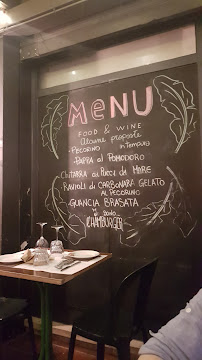 MENU
FOOD & WINE
Alcune proposte
- PECORINO in Tempura
- PAPPA al POMODORO
CHITARRA ai PESCI del MARE
RAVIOLI di CARBONARA GELATO
AL PECORINO
GUANCIA BRASATA
HAMBURGER